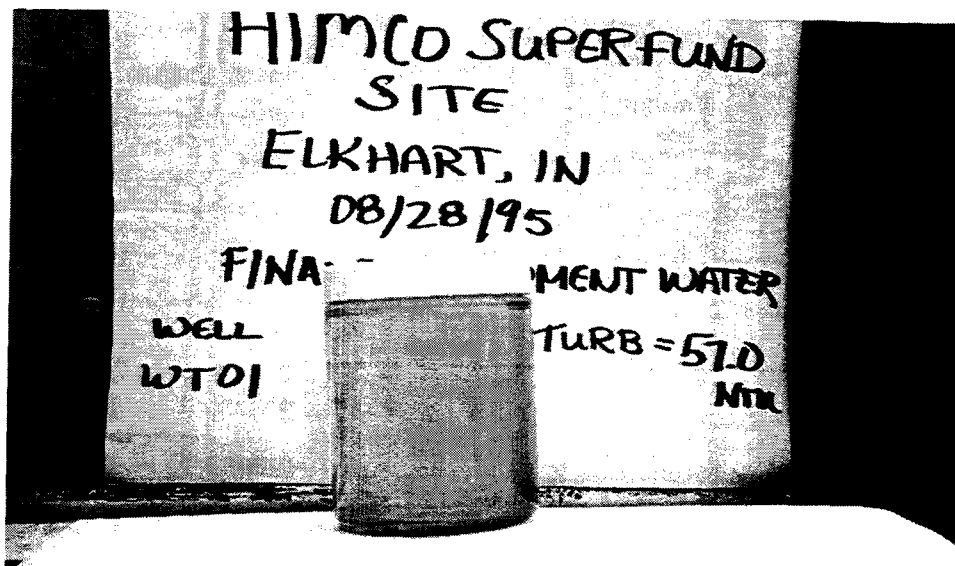 HIMCO SUPERFUND
SITE
ELKHART, IN
08/28/95
FINA MENT WATER
WELL TURB = 57.0
WT01 NTU